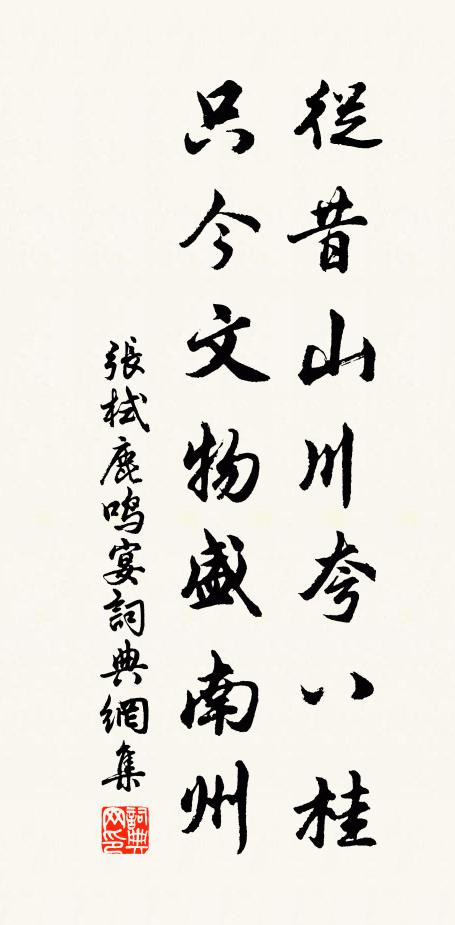 從昔山川夸八桂
只今文物盛南州
張栻鹿鳴宴詞典網集
詞典網印